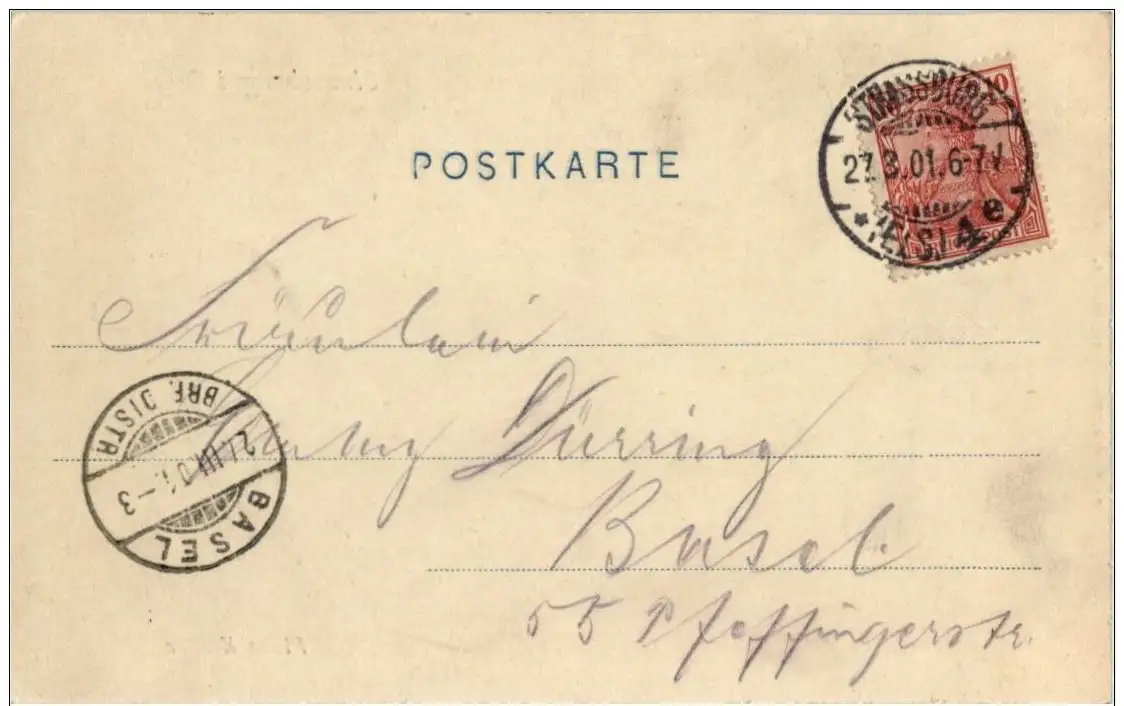 POSTKARTE
STRASSBURG
27.3.01.6-7V
* (ELS) 4 e
10
REICHSPOST
Fräulein
Fanny Dürring
Basel
55 Pfeffingerstr.
BASEL
BRF. DISTR.
27.III.01.–3